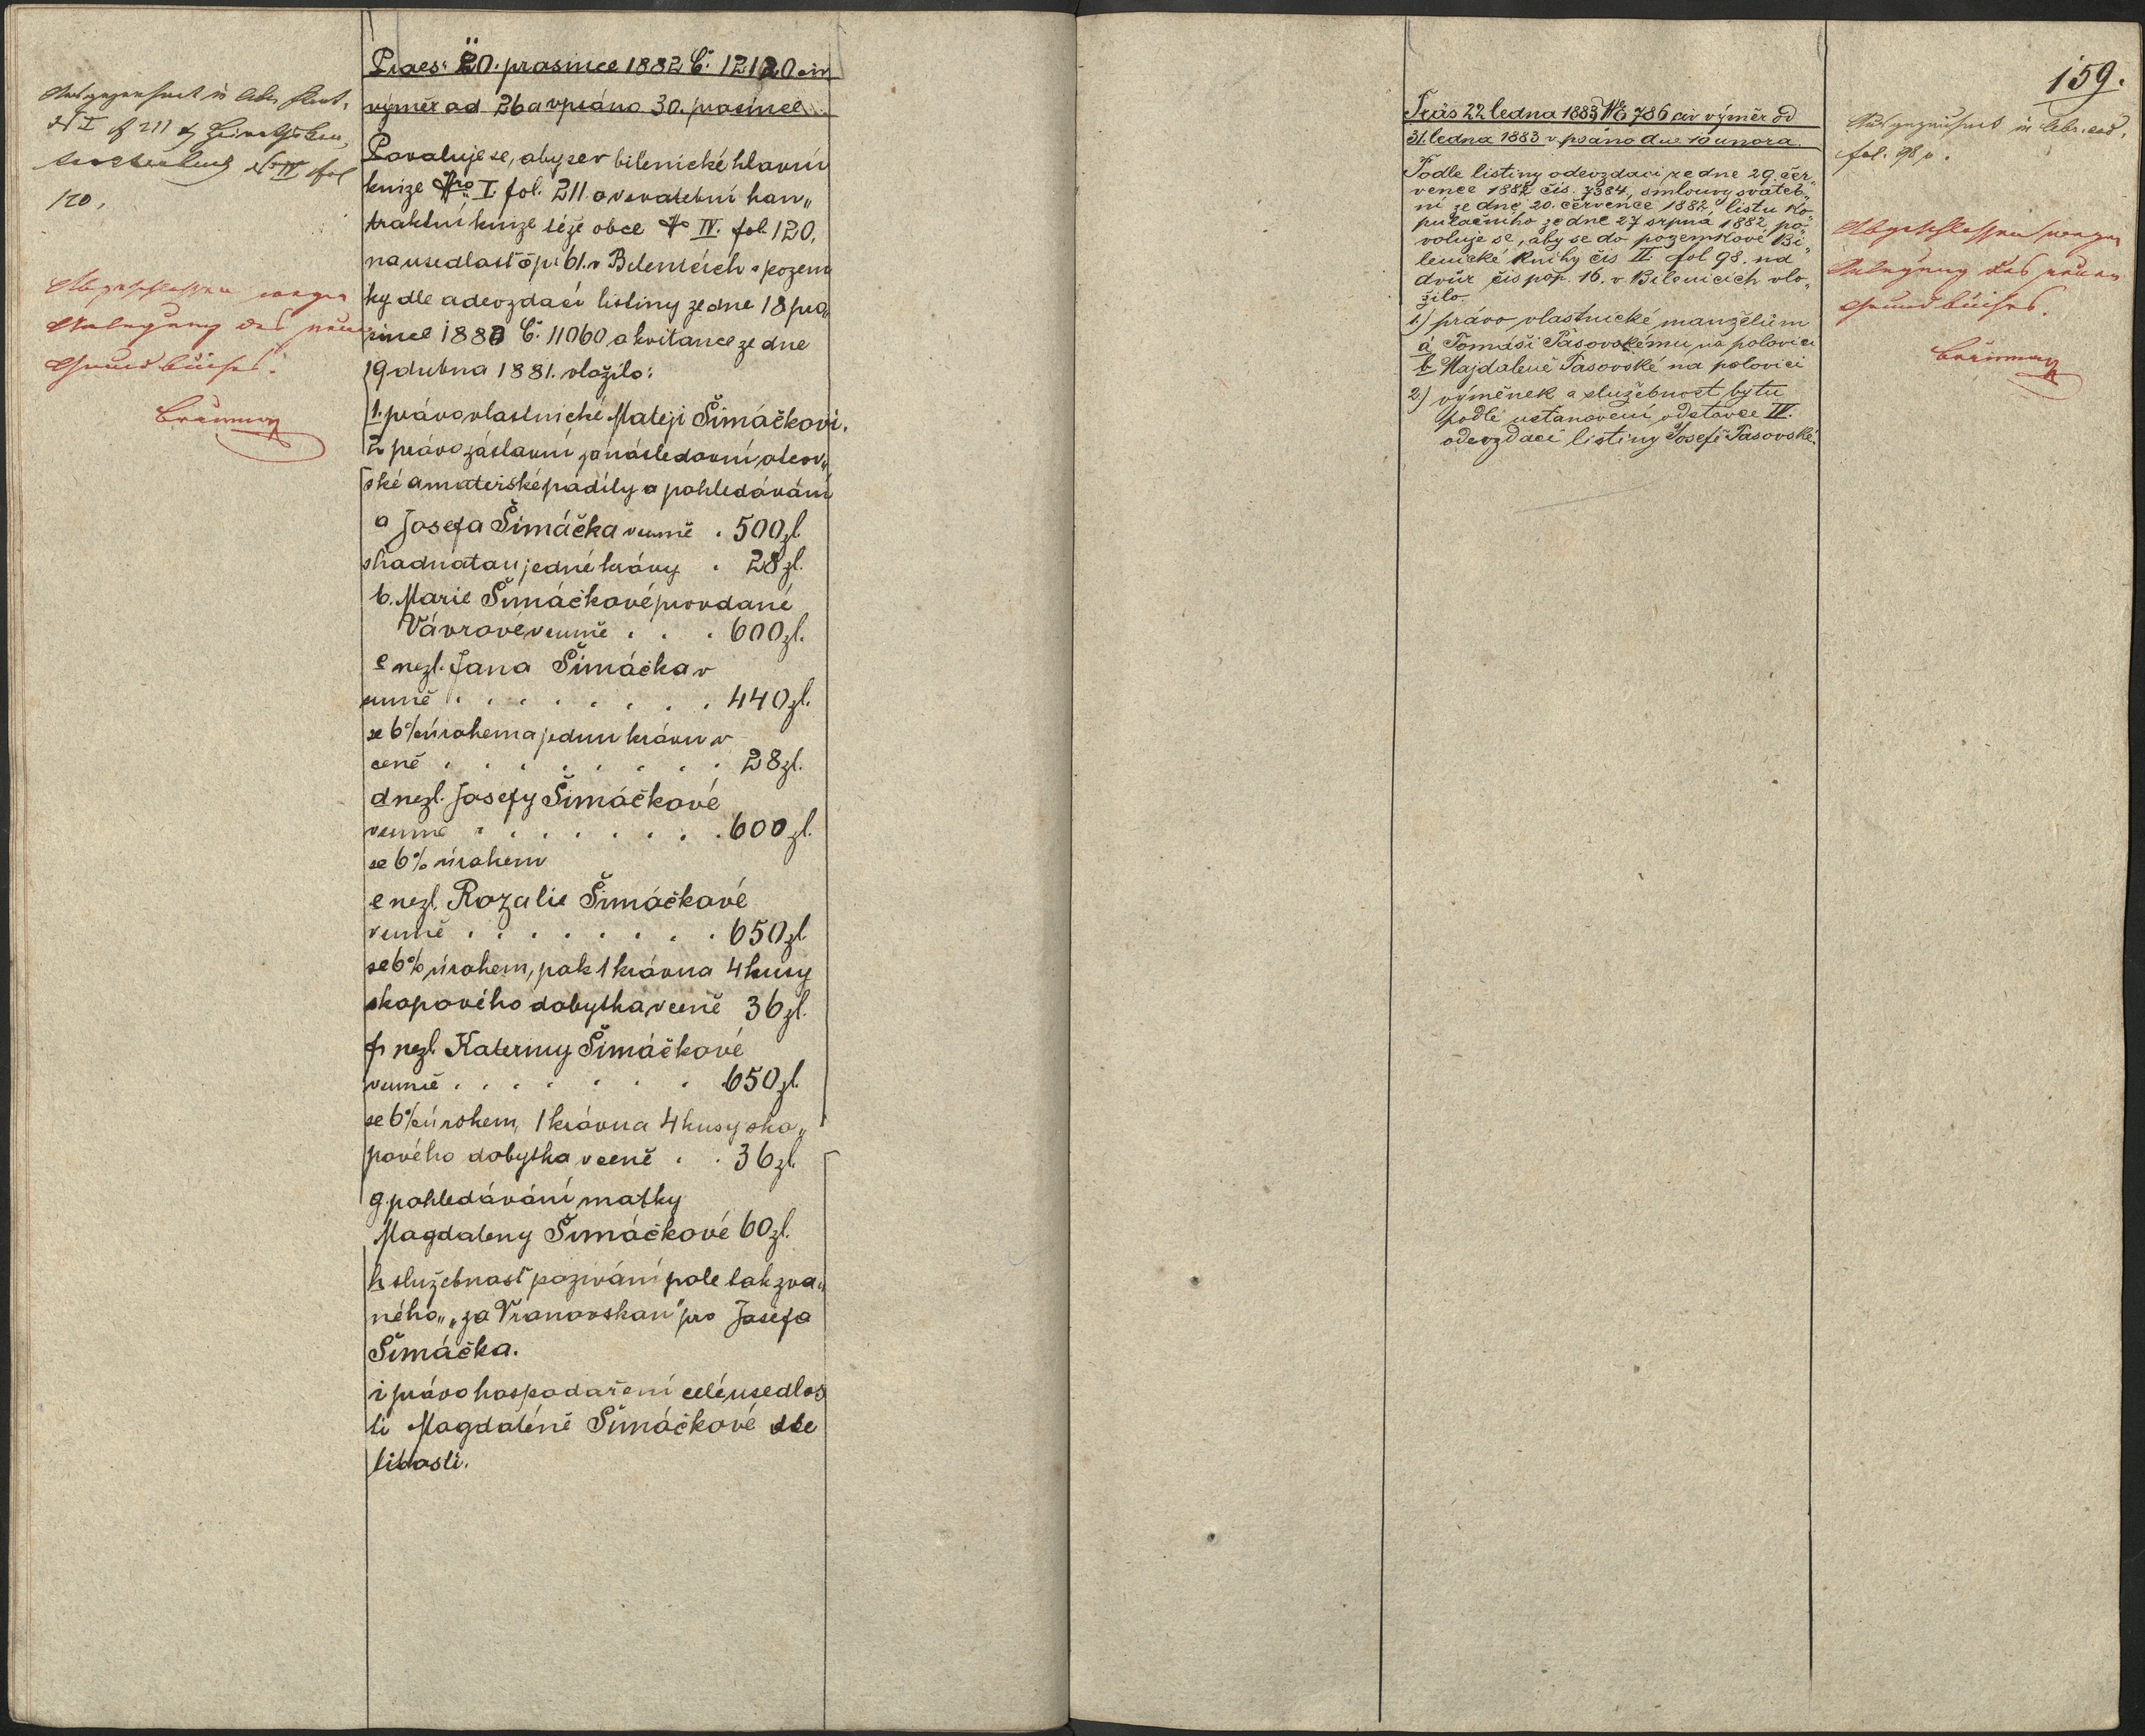 Praes: 20. prasince 1882 Č. 12120 civ
výměr ad 26 a vpsáno 30. prosince
Povoluje se, aby se v bilenické hlavní
knize Nro I. fol. 211. a v svatební kon„
traktní knize téže obce No IV. fol. 120.
na usedlasť čp: 61. v Bilenicích s pozem
ky dle adevzdací listiny ze dne 18 pro„
since 1880 Č. 11060 a kvitance ze dne
19 dubna 1881. vložilo:
1. právo vlastnické Mateji Šimáčkovi.
2 právo zástavní za následovní otcov„
ské a mateřské padíly a pohledávání
a Josefa Šimáčka v sumě . 500 zl
s hadnotau jedné krávy . 28 zl.
b. Marie Šimáčkové provdané
Vávrové v sumě . . . 600 zl.
c nezl. Jana Šimáčka v
sumě . . . . . . . . 440 zl.
se 6% úrokem a jednu krávu v
ceně . . . . . . . . 28 zl.
d nezl. Josefy Šimáčkové
v sumě . . . . . . . . 600 zl.
se 6% úrokem
e nezl. Rozalie Šimáčkové
v sumě . . . . . . . . 650 zl
se 6% úrokem, pak 1 krávu a 4 kusy
skopového dobytka v ceně 36 zl.
f. nezl. Kateriny Šimáčkové
v sumě . . . . . . . 650 zl.
se 6% úrokem, 1 krávu a 4 kusy sko„
pového dobytka v ceně . . 36 zl.
g. pohledávání matky
Magdaleny Šimáčkové 60 zl.
h služebnasť pozivání pole tak zva„
ného „za Vranovskau" pro Josefa
Šimáčka.
i právo hospodaření celé usedlos
ti Magdaléně Šimáčkové dle
libosti.
No I f 211 &
No IV fol
120.
Abgeschlossen wegen
Anlegung des neuen
Grundbuches.
159.
Präs 22 ledna 1883 No 786 civ výměr od
31. ledna 1883 vpsáno dne 10 unora.
Podle listiny odevzdací ze dne 29. čer„
vence 1882 čís. 7384, smlouvy svateb„
ní ze dne 20. července 1882 listu ko„
pulačního ze dne 27 srpna 1882 po„
voluje se, aby se do pozemkové Bi„
lenické knihy čis II fol 98. na
dvůr čis pop. 16. v Bilenicích vlo„
žilo.
1.) právo vlastnické manželům
a Tomáši Pasovskému na polovici
b Majdaleně Pasovské na polovici
2.) výměnek a služebnost bytu
podle ustanovení odstavce IV.
odevzdací listiny Josefě Pasovské.
fol. 98 p.
Abgeschlossen wegen
Anlegung des neuen
Grundbuches.